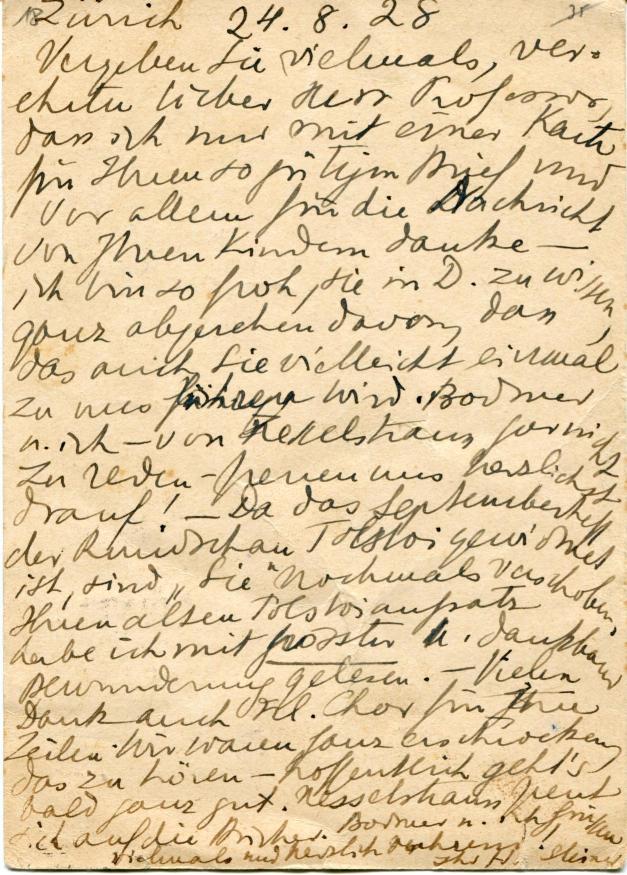 Zürich 24. 8. 28
Vergeben Sie vielmals, ver-
ehrter lieber Herr Professor,
dass ich nur mit einer Karte
für Ihren so gütigen Brief und
vor allem für die Nachricht
von Ihren Kindern danke —
ich bin so froh, sie in D. zu wissen,
ganz abgesehen davon, dass
das auch Sie vielleicht einmal
zu uns führen wird. Bodmer
u. ich — von Hesselshaus gar nicht
zu reden — freuen uns herzlichst
drauf! — Da das Septemberheft
der Rundschau Tolstoi gewidmet
ist, sind "Sie" nochmals verschoben.
Ihren alten Tolstoiaufsatz
habe ich mit grösster u. dankbarer
Bewunderung gelesen. — Vielen
Dank auch Frl. Chor für Ihre
Zeilen. Wir waren ganz erschrocken,
das zu hören — hoffentlich geht's
bald ganz gut. Hesselshaus freut
sich auf die Bücher. Bodmer u. ich grüssen
vielmals und herzlich
Ihr H. Steiner